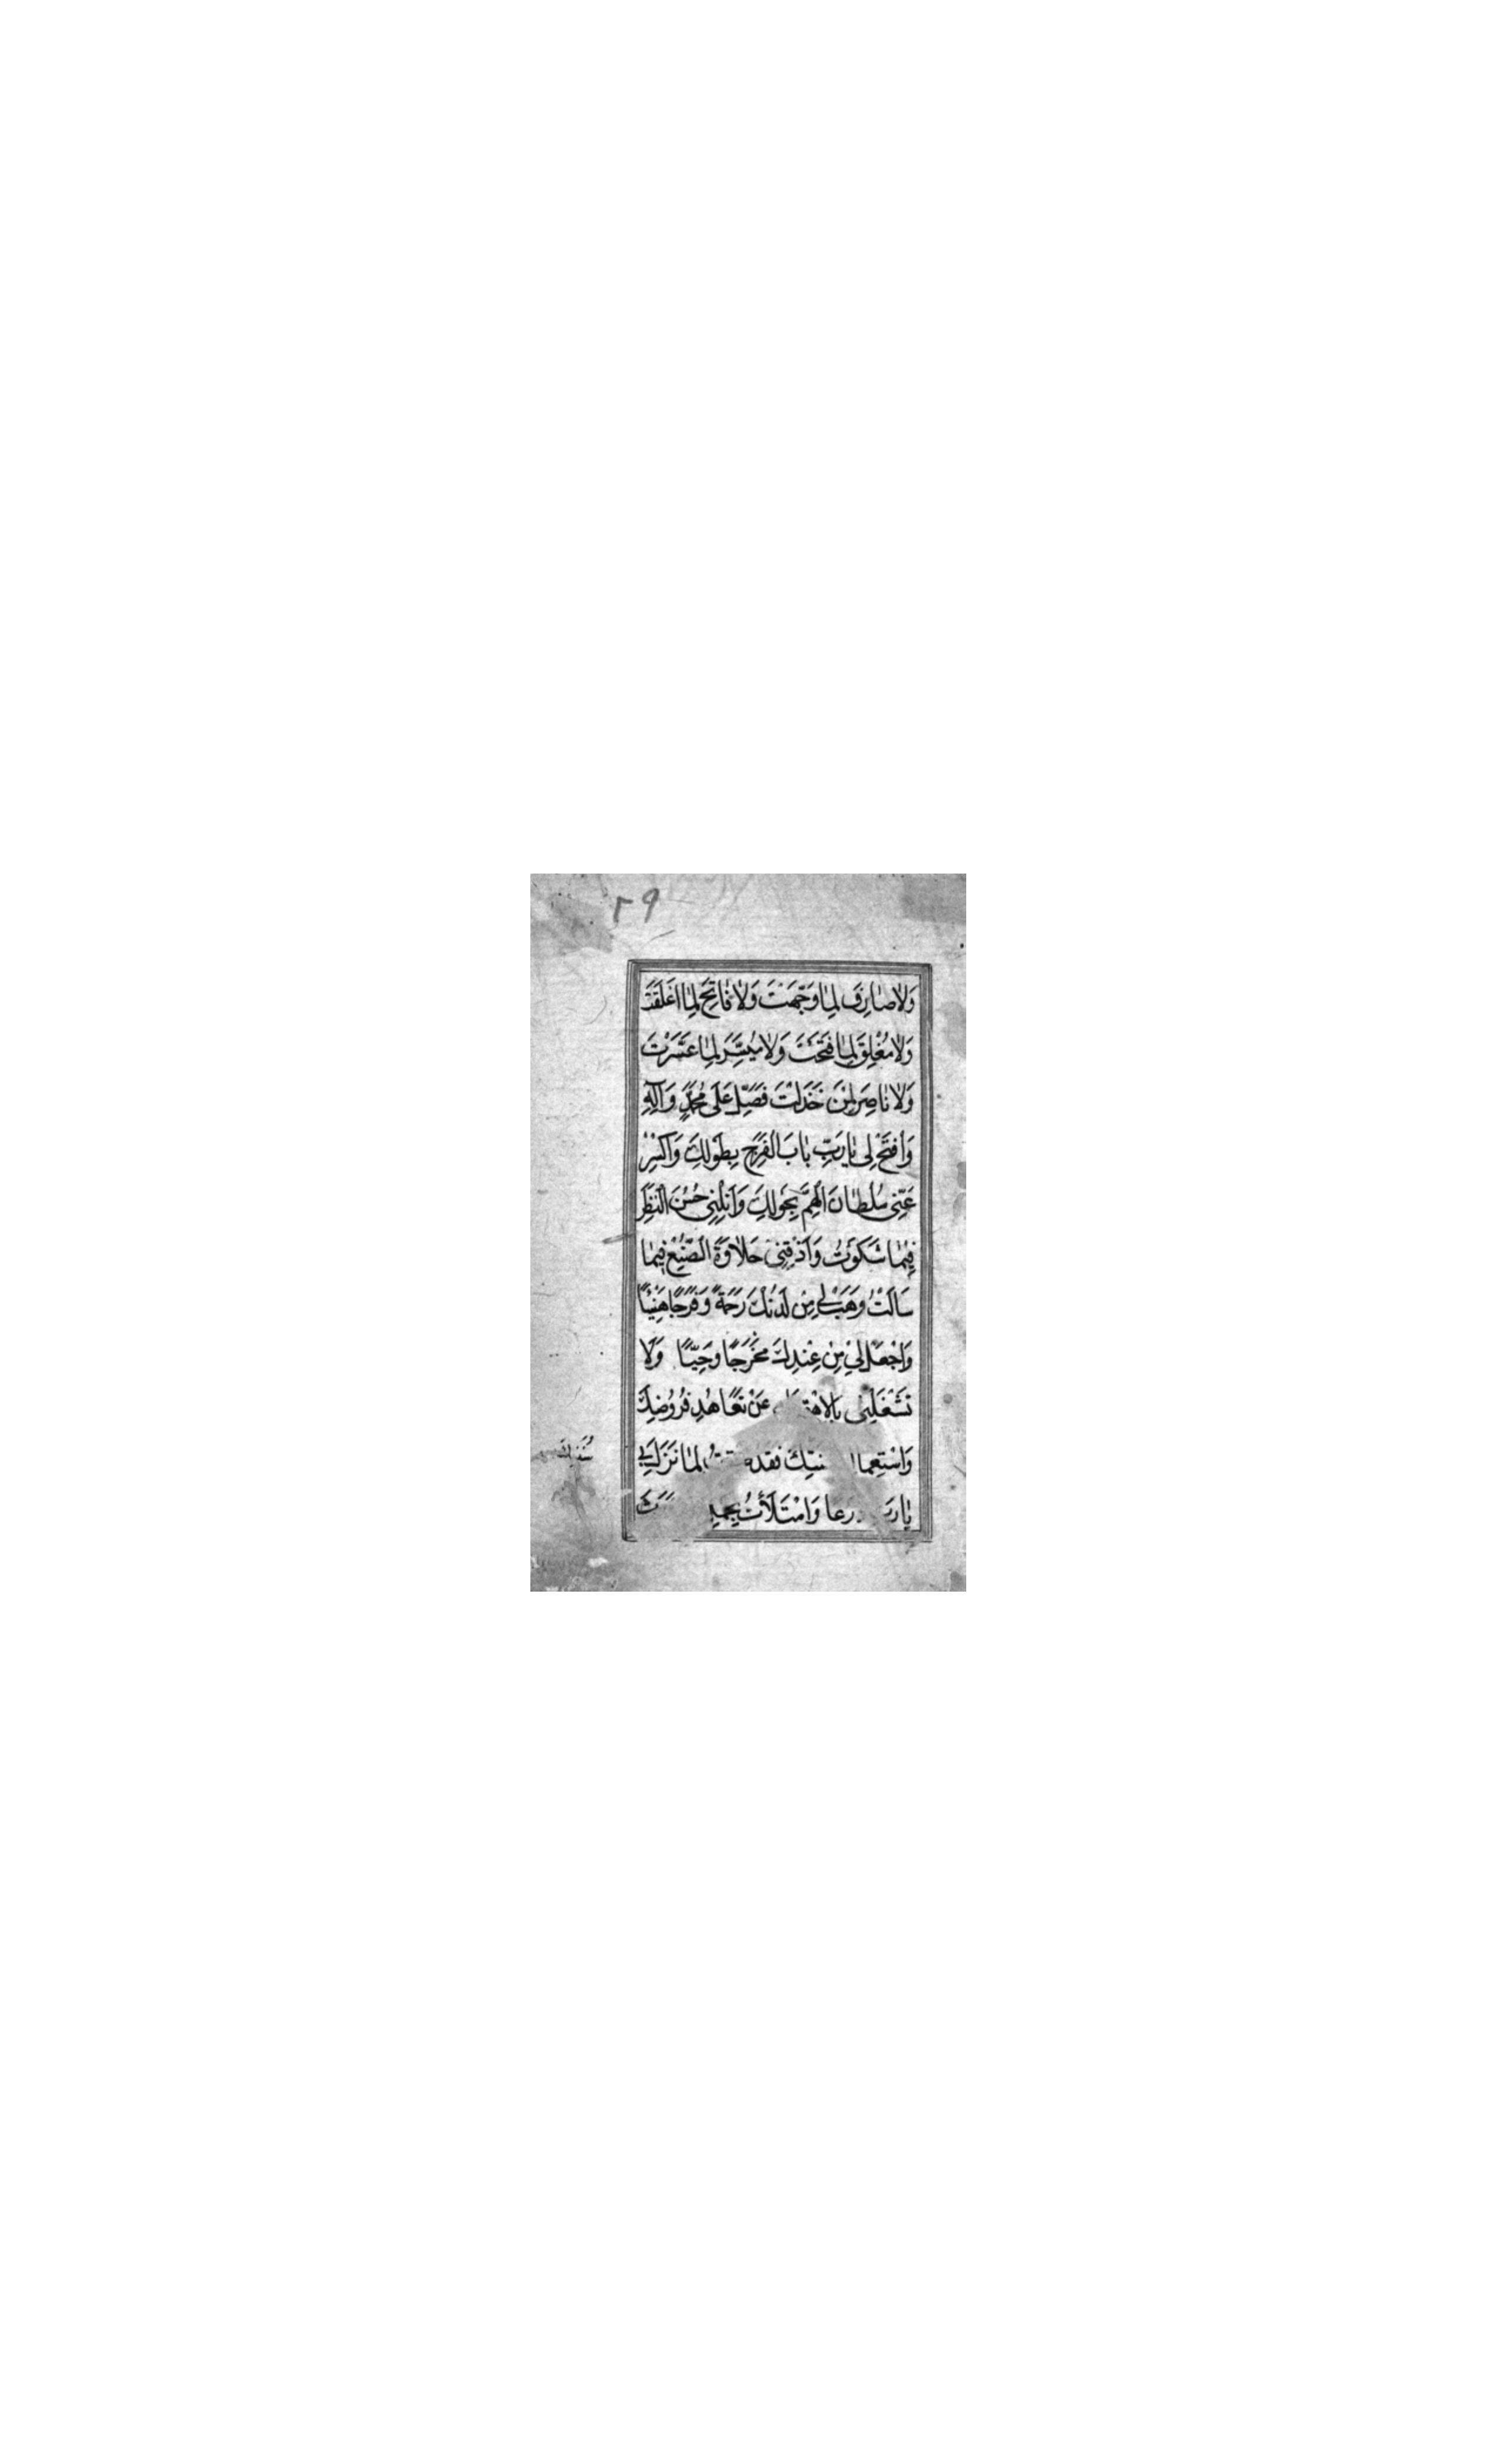 ٢٩
وَلَا صَارِفَ لِمَا وَجَّهْتَ وَلَا فَاتِحَ لِمَا اَغْلَقْتَ
وَلَا مُغْلِقَ لِمَا فَتَحْتَ وَلَا مُيَسِّرَ لِمَا عَسَّرْتَ
وَلَا نَاصِرَ لِمَنْ خَذَلْتَ فَصَلِّ عَلَى مُحَمَّدٍ وَآلِهِ
وَافْتَحْ لِى يَا رَبِّ بَابَ الْفَرَجِ بِطَوْلِكَ وَاكْسِرْ
عَنِّى سُلْطَانَ الْهَمِّ بِحَوْلِكَ وَاَنِلْنِى حُسْنَ النَّظَرِ
فِيمَا شَكَوْتُ وَاَذِقْنِى حَلَاوَةَ الصُّنْعِ فِيمَا
سَاَلْتُ وَهَبْ لِى مِنْ لَدُنْكَ رَحْمَةً وَفَرَجًا هَنِيئًا
وَاجْعَلْ لِى مِنْ عِنْدِكَ مَخْرَجًا وَحِيًّا وَلَا
تَشْغَلْنِى عَنْ تَعَاهُدِ فُرُوضِكَ
فَقَد لِمَا نَزَلَ بِى
يَا وَامْتَلَأْتُ